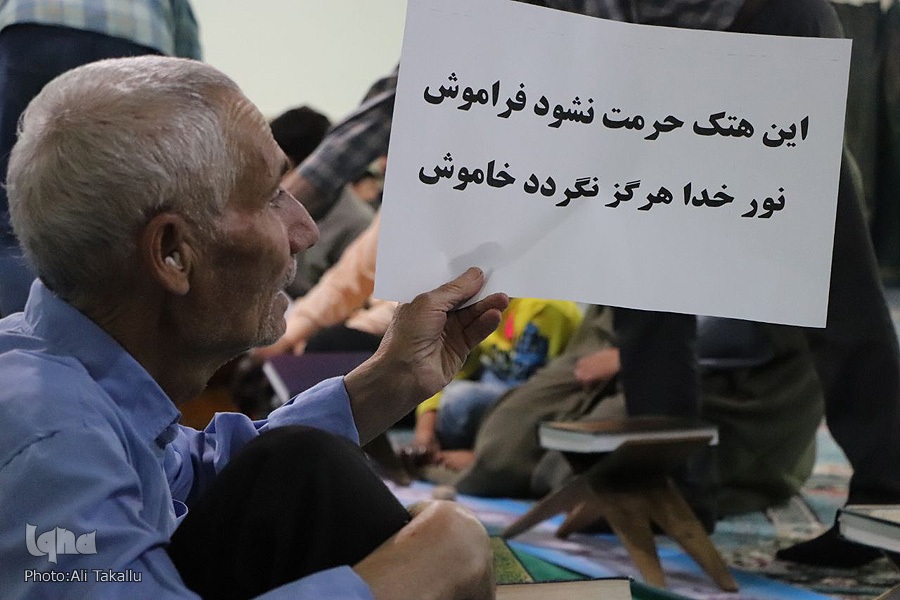 این هتک حرمت نشود فراموش
نور خدا هرگز نگردد خاموش
iqna
Photo:Ali Takallu